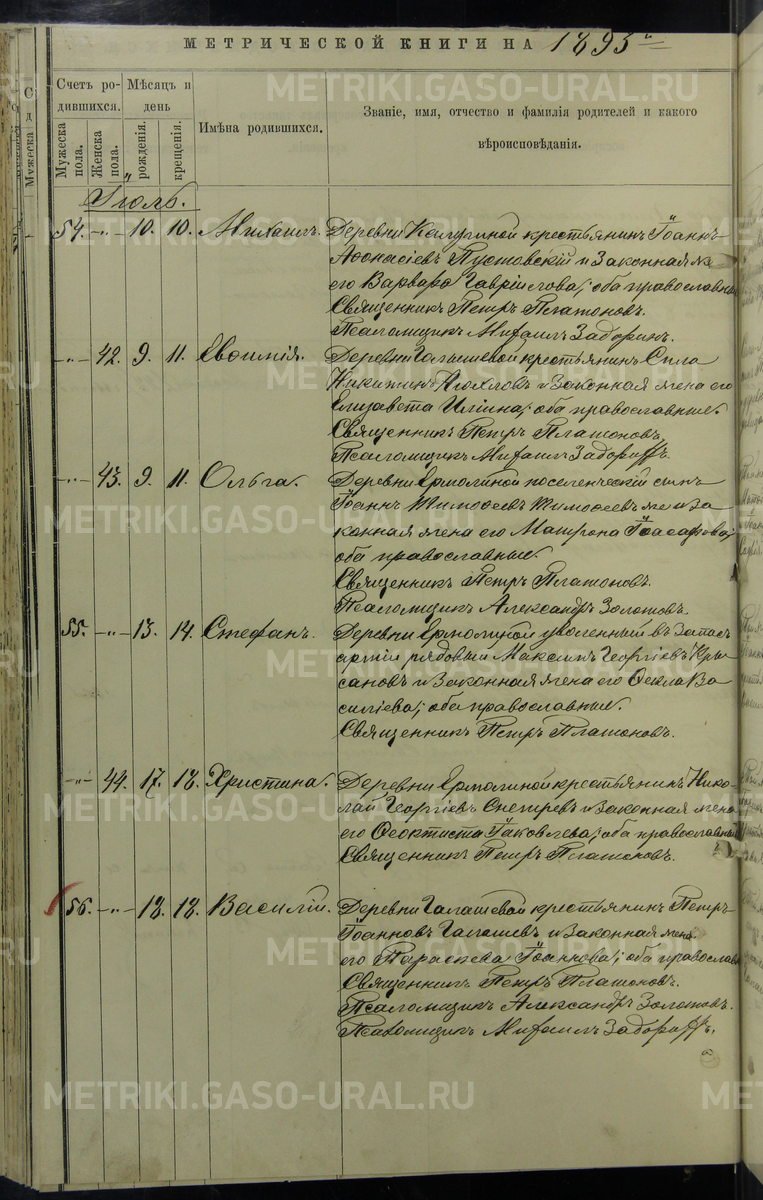 МЕТРИЧЕСКОЙ КНИГИ НА 1895
Счетъ ро-
дившихся.
Мѣсяцъ и
день
Мужеска
пола.
Женска
пола.
рожденія.
крещенія.
Имѣна родившихся.
Званіе, имя, отчество и фамилія родителей и какого
вѣроисповѣданія.
Іюль.
54. -„- 10. 10. Михаилъ. Деревни Калугиной крестьянинъ Іоаннъ
Аѳонасіевъ Пустовскій и законная ж
его Варвара Гавріилова; оба православные
Священникъ Петръ Платоновъ.
Псаломщикъ Михаилъ Задоринъ.
-„- 42. 9. 11. Евѳимія. Деревни Галышевой крестьянинъ Сила
Никитинъ и законная жена его
Елизавета Иліина; оба православные.
Священникъ Петръ Платоновъ.
Псаломщикъ Михаилъ Задоринъ.
-„- 43. 9. 11. Ольга. Деревни Ермолиной поселенческій сынъ
Іоаннъ Тимоѳеевъ Тимоѳеевъ же и за
конная жена его Матрона Іоасафова;
оба православные.
Священникъ Петръ Платоновъ.
Псаломщикъ Александръ Золотовъ.
55. -„- 13. 14. Стефанъ. Деревни Ермолиной уволенный въ запасъ
арміи рядовый Максимъ Георгіевъ Кры-
сановъ и законная жена его Ѳекла Ва
силіева; оба православные.
Священникъ Петръ Платоновъ.
-„- 44. 17. 18. Христина. Деревни крестьянинъ Нико-
лай Георгіевъ и законная жена
его Ѳеоктиста Іаковлева; оба православные
Священникъ Петръ Платоновъ.
56. -„- 18. 18. Василій. Деревни Галашевой крестьянинъ Петръ
Іоанновъ Галашевъ и законная жена
его Параскева Іоаннова; оба православ
Священникъ Петръ Платоновъ.
Псаломщикъ Александръ Золотовъ.
Псаломщикъ Михаилъ Задоринъ.
METRIKI.GASO-URAL.RU